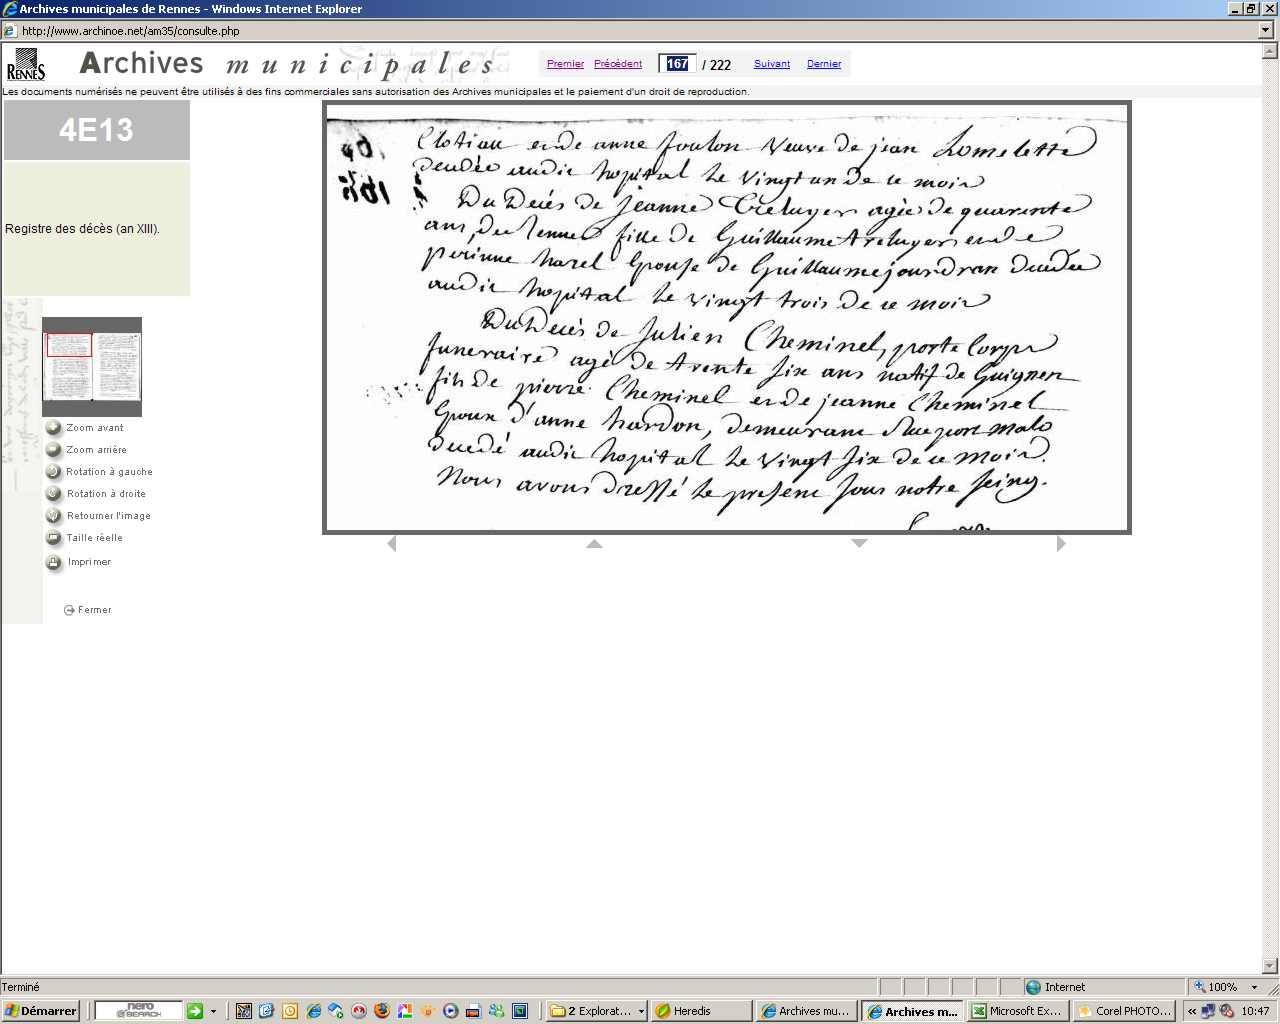 Archives municipales de Rennes - Windows Internet Explorer
http://www.archinoe.net/am35/consulte.php
RENNES
Archives municipales
Premier Précédent 167 / 222 Suivant Dernier
Les documents numérisés ne peuvent être utilisés à des fins commerciales sans autorisation des Archives municipales et le paiement d'un droit de reproduction.
4E13
Registre des décès (an XIII).
et de anne foulon Veuve de jean Lomelette
decedée audit hopital Le Vingt un de ce mois
Du Decés de jeanne Treluyer agée de quarente
ans, de Rennes fille de Guillaume treluyer et de
perinne harel Epouse de Guillaume jourdran decedée
audit hopital Le vingt trois de ce mois
Du Decés de Julien Cheminel, porte Corps
funeraire agé de trente six ans natif de Guignen
fils de pierre Cheminel et de jeanne Cheminel
Epoux d'anne hardon, demeurant Rue port malo
decedé audit hopital Le Vingt six de ce mois.
Nous avons dressé Le present sous notre seing.
Zoom avant
Zoom arrière
Rotation à gauche
Rotation à droite
Retourner l'image
Taille réelle
Imprimer
Fermer
Terminé
Internet
100%
Démarrer
nero
SEARCH
2 Explorat...
Heredis
Archives mu...
Archives m...
Microsoft Ex...
Corel PHOTO...
«
10:47